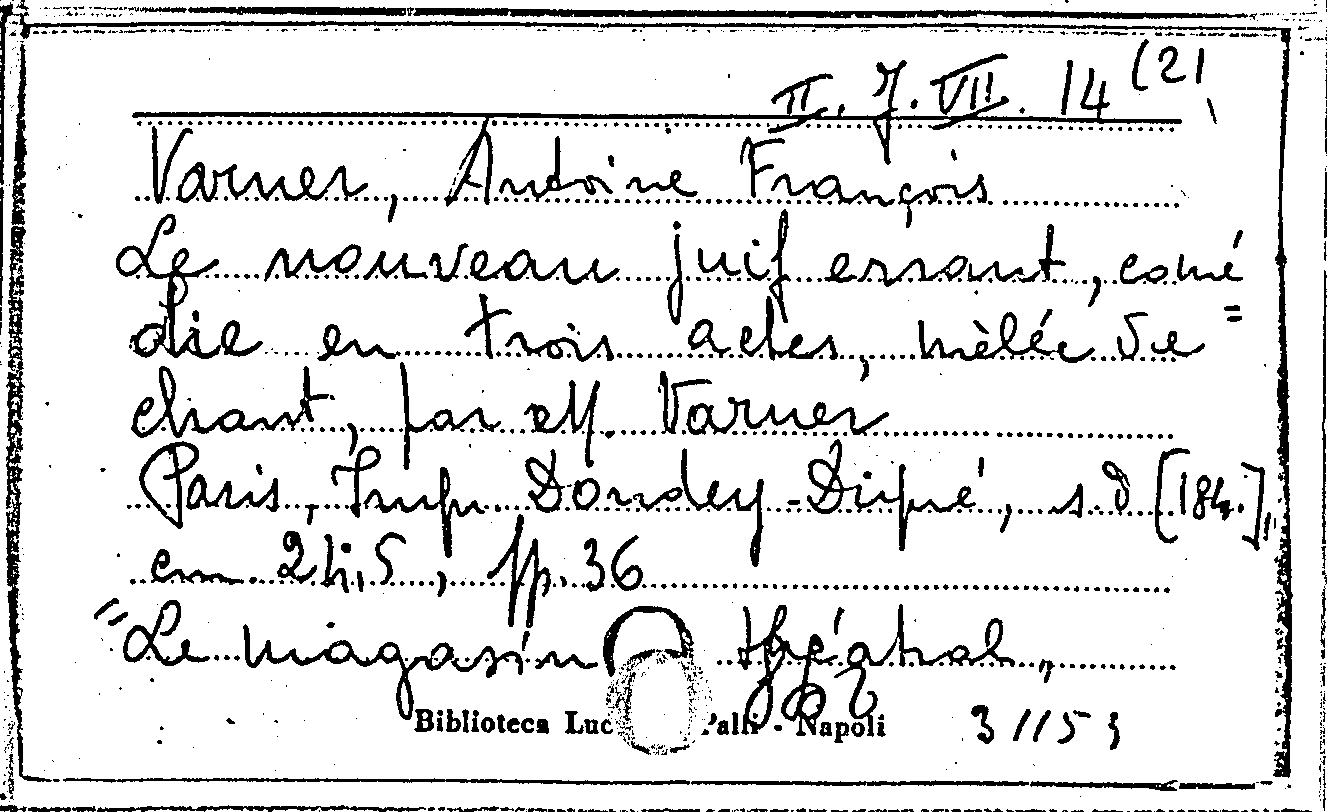 II. J. VII. 14 (2)
Varner, Antoine François
Le nouveau juif errant, comé=
die en trois actes, mêlée de
chant, par M. Varner
Paris, Imp. Dondey-Dupré, s.d [184.],
cm 24,5, pp. 36
"Le magasin théatral"
Biblioteca Luc Palli - Napoli